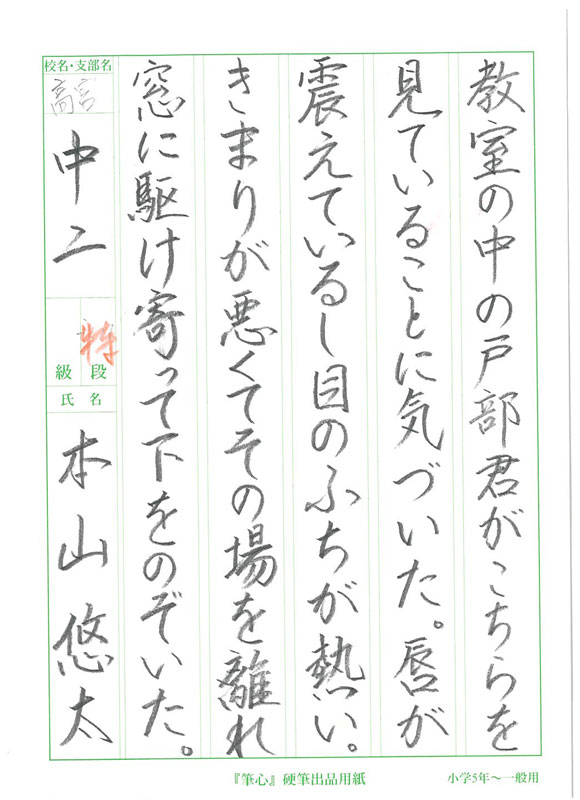 教室の中の戸部君がこちらを
見ていることに気づいた。唇が
震えているし目のふちが熱い。
きまりが悪くてその場を離れ
窓に駆け寄って下をのぞいた。
校名・支部名
高宮
中二
特
段
級
氏名
本山悠太
『筆心』硬筆出品用紙
小学5年～一般用